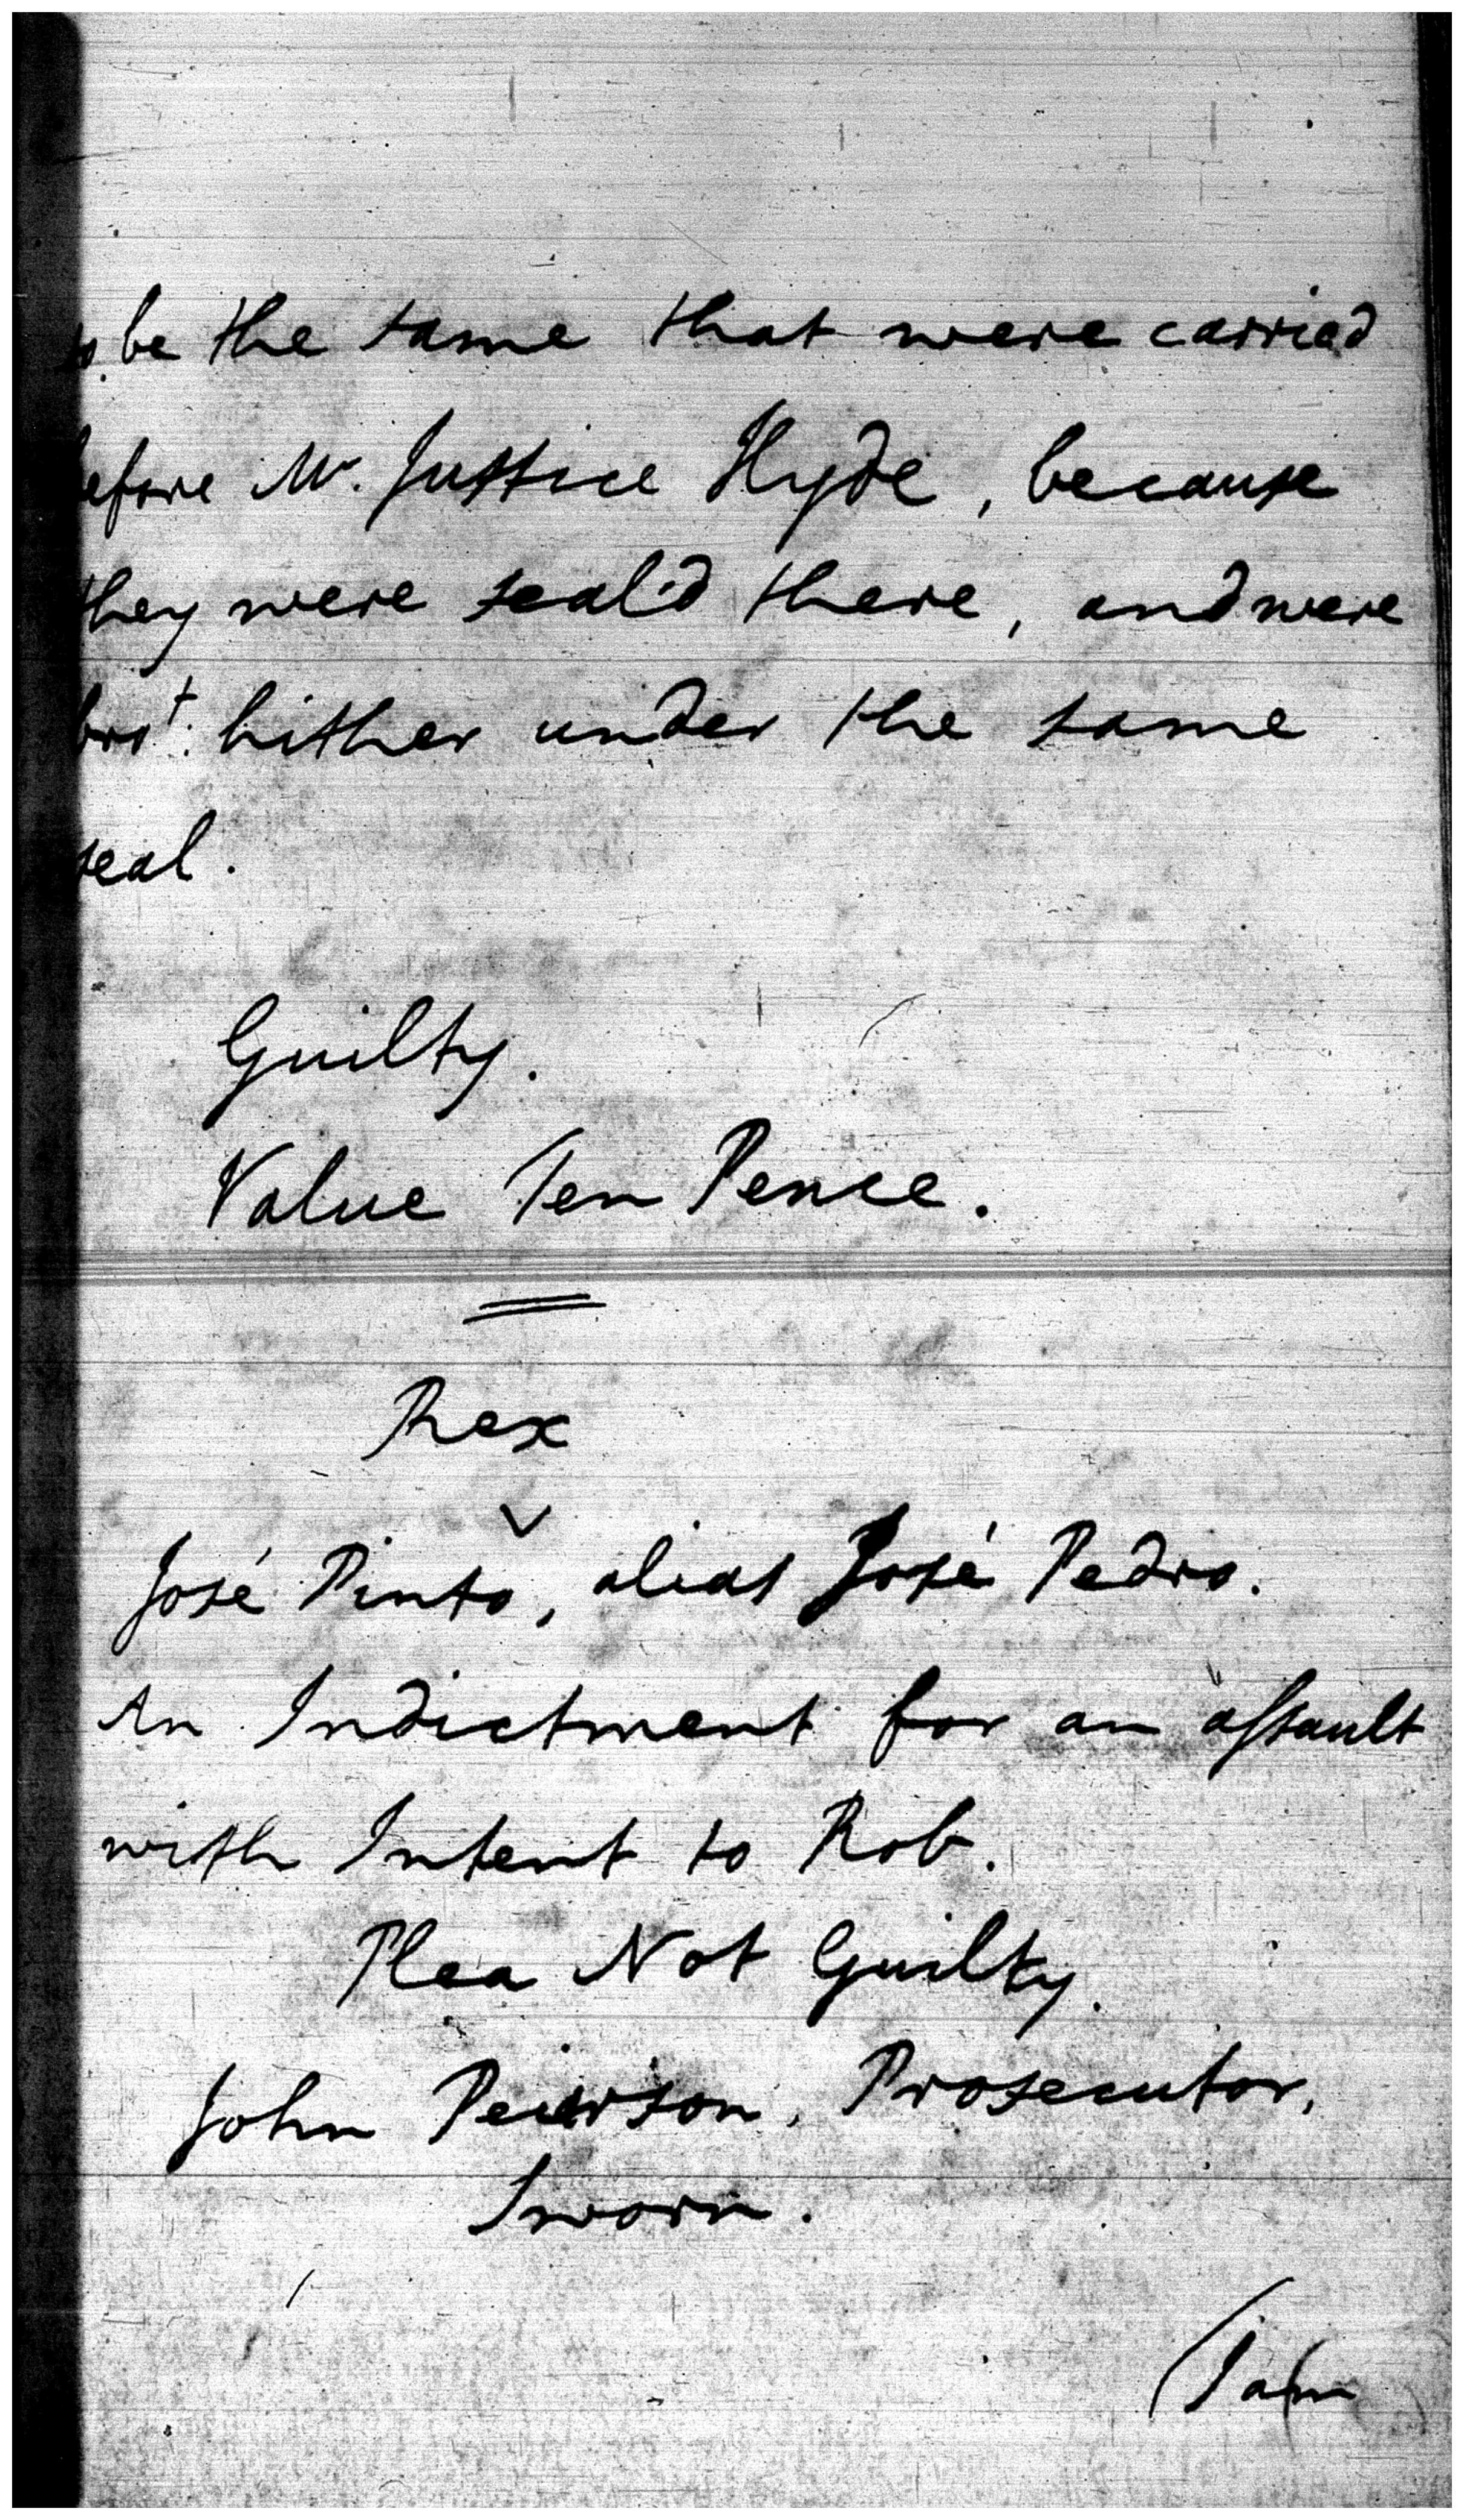 to be the same that were carried
before Mr. Justice Hyde, because
they were seal'd there, and were
bro't: hither under the same
seal.
Guilty.
Value Ten Pence.
Rex
v
José Pinto, alias José Pedro.
An Indictment for an assault
with Intent to Rob.
Plea Not Guilty.
John Peierson, Prosecutor,
Sworn.
(I am